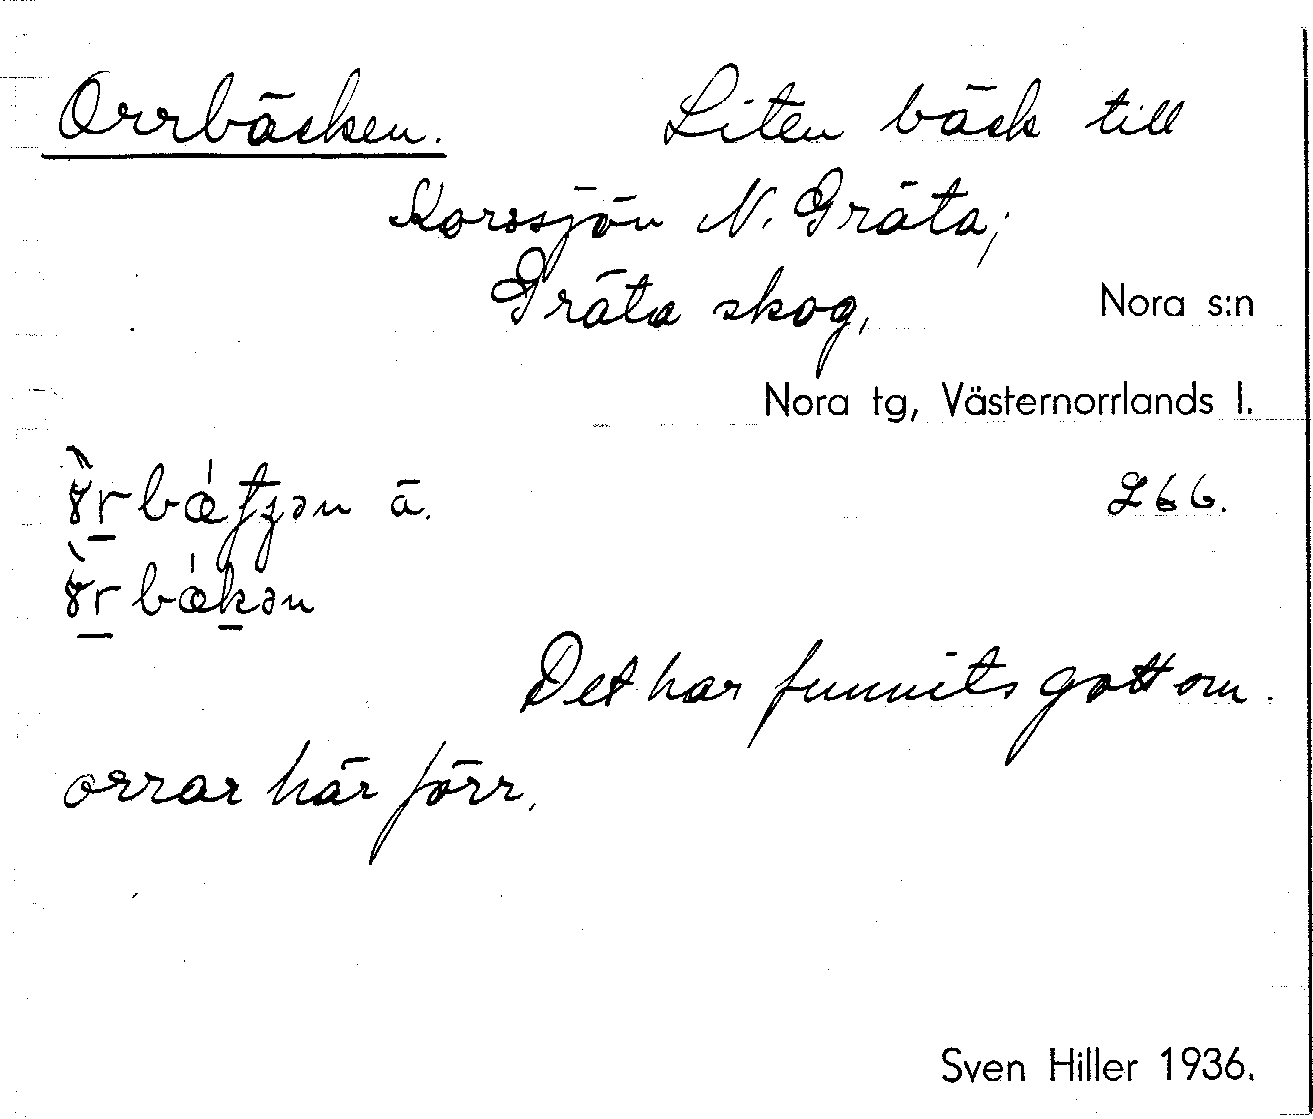 Orrbäcken. Liten bäck till
Korssjön N. Gräta;
Gräta skog, Nora s:n
Nora tg, Västernorrlands l.
ä. L 66.
Det har funnits gott om
orrar här förr.
Sven Hiller 1936.